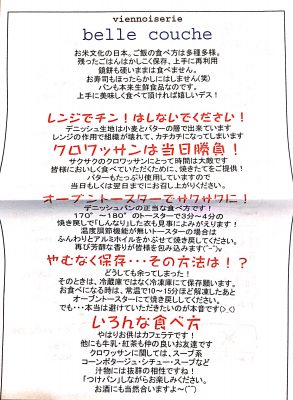 viennoiserie
belle couche
お米文化の日本。ご飯の食べ方は多種多様。
残ったごはんはかしこく保存、上手に再利用
鏡餅も硬いままは食べません。
お寿司もほったらかしにはしません(笑)
パンも本来生鮮食品なのです。
上手に美味しく食べて頂ければ嬉しいデス！
レンジでチン！はしないでください！
デニッシュ生地は小麦とバターの層で出来ています
レンジの作用で組織が壊れて、カチカチになってしまいます
クロワッサンは当日勝負！
サクサクのクロワッサンにとって時間は大敵です
皆様においしく食べていただくために、焼きたてをご提供！
バターもたっぷり使用していますので
当日もしくは翌日までにお召し上がりください。
オーブントースターでサクサクに！
デニッシュパンの正当な食べ方です！
170°～180°のトースターで3分～4分の
焼き戻しで「しんなり」した衣も見事によみがえります！
温度調節機能が無いトースターの場合は
ふんわりとアルミホイルをかぶせて焼き戻してください。
再び芳香な香りが皆様を包み込みます(^-^)v
やむなく保存・・・その方法は！？
どうしても余ってしまった！
そのときは、冷蔵庫ではなく冷凍庫にて保存願います。
お食べになる時は、常温で10～15分ほど解凍したあと
オーブントースターにて焼き戻ししてください。
でも・・本当は避けていただきたいのが本音です(>_<)
いろんな食べ方
やはりお供はカフェラテです！
他にも牛乳・紅茶も仲の良いお友達です
クロワッサンに関しては、スープ系
コーンポタージュ・シチュー・スープなど
汁物には抜群の相性ですね！
「つけパン」しながらお楽しみください。
お酒にも当然合いますよ～(^^)